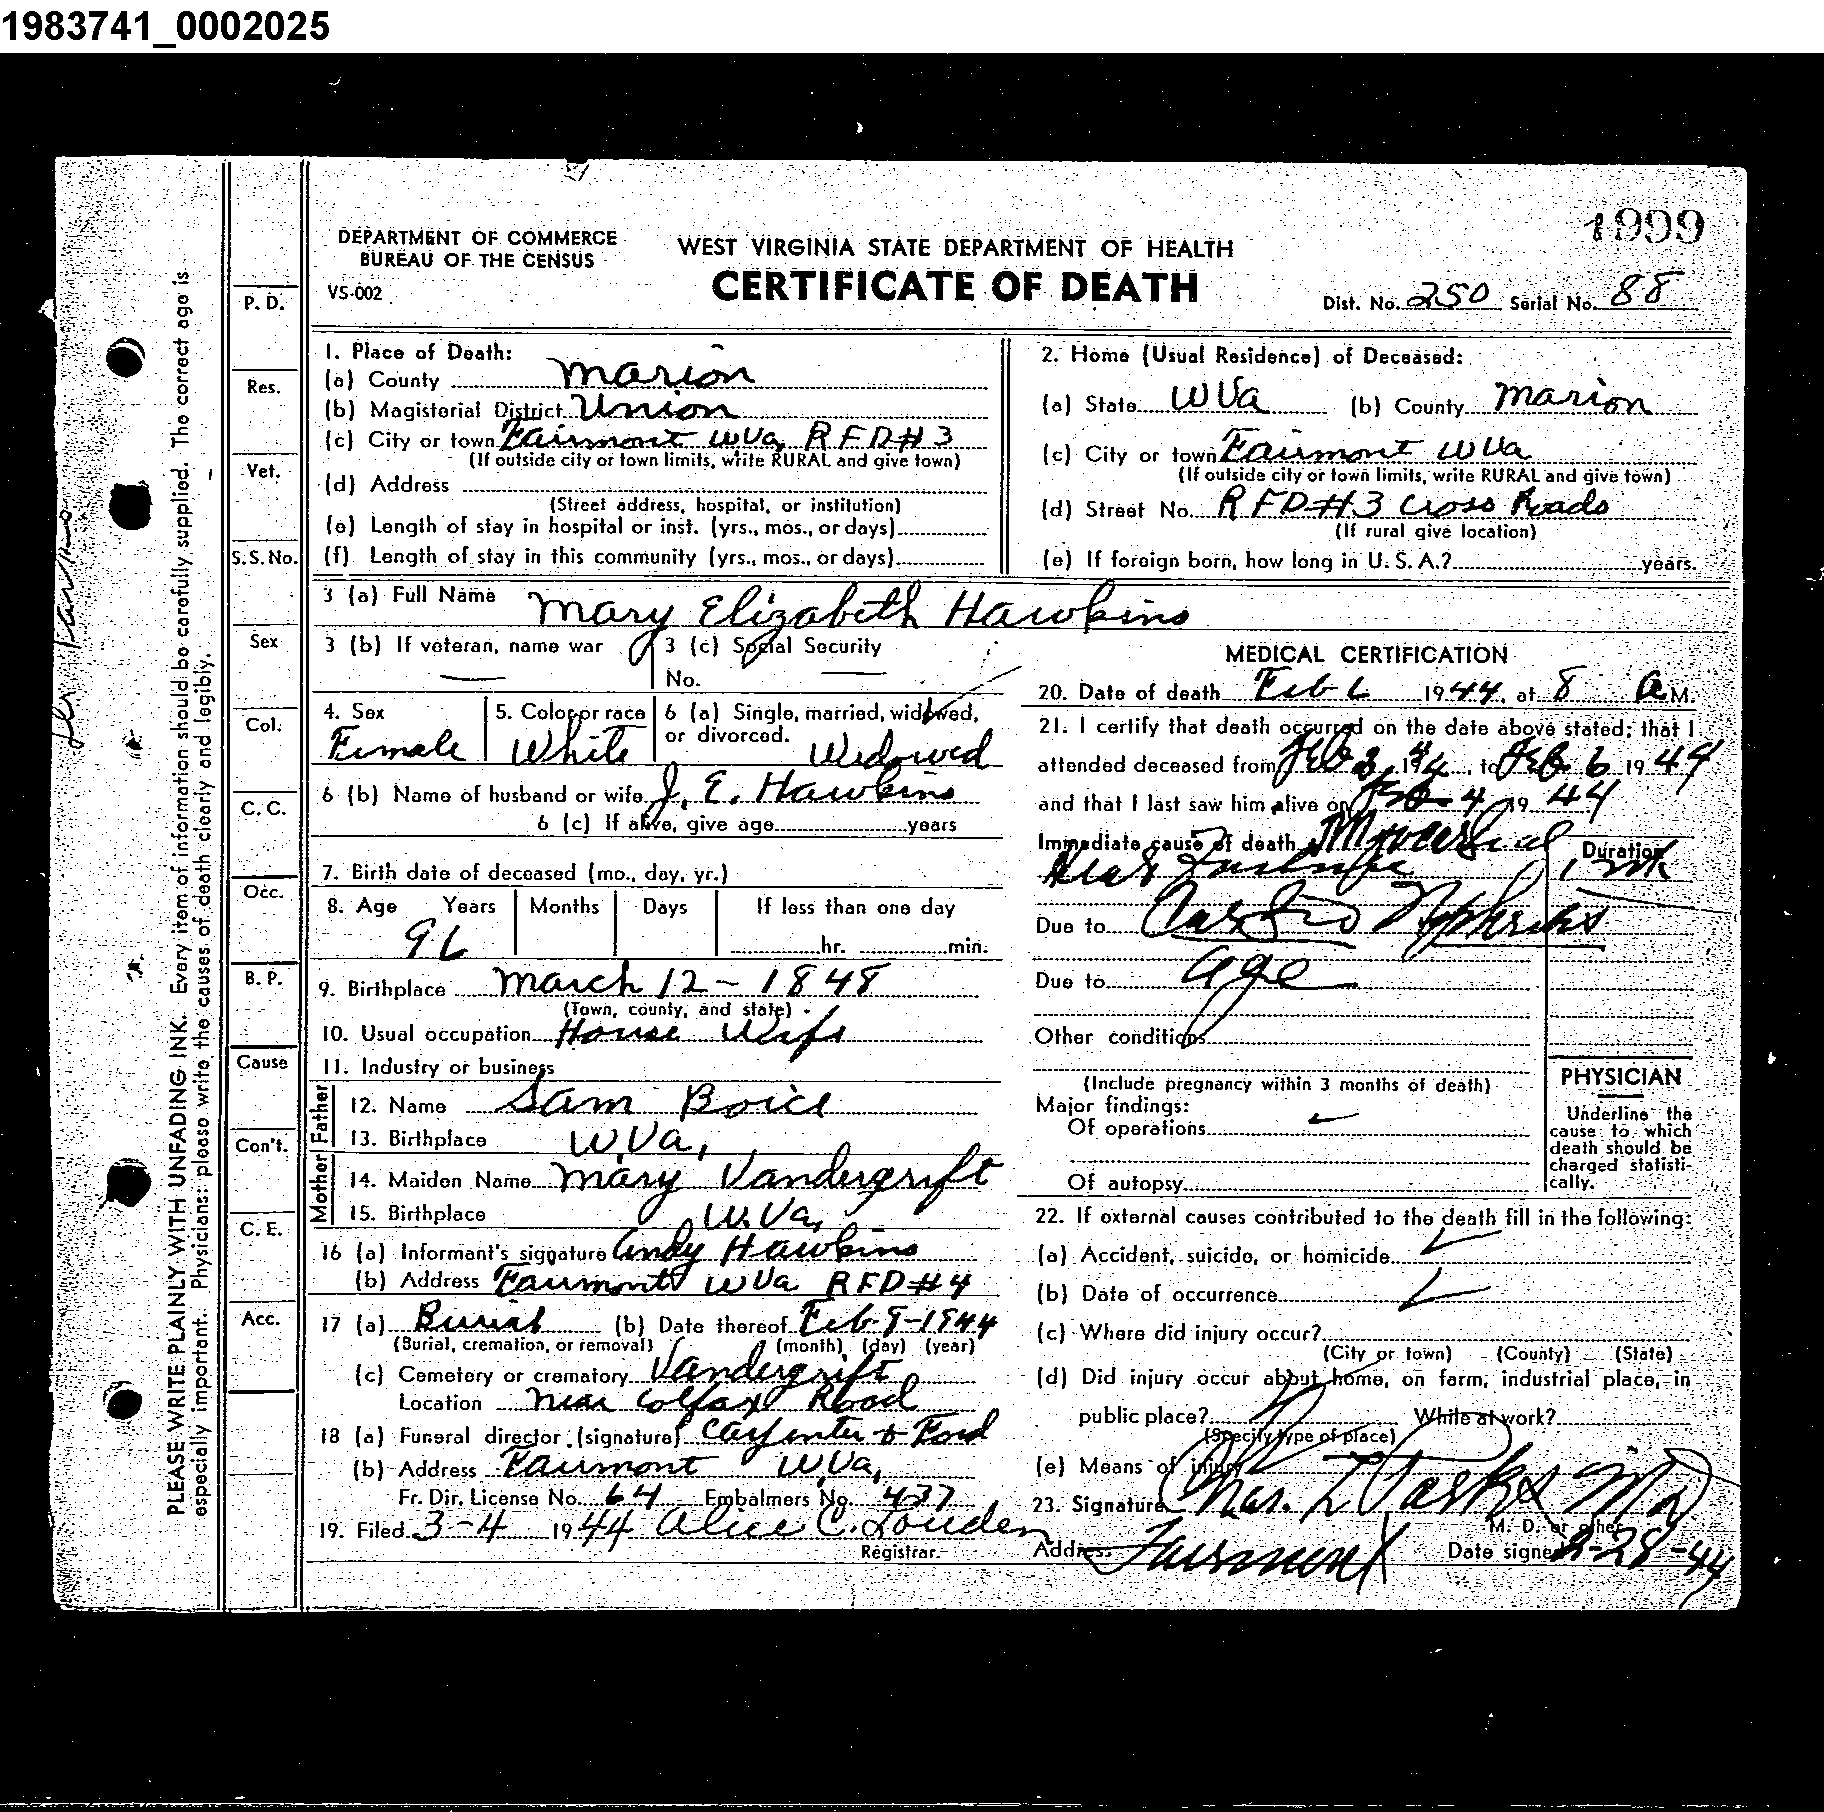 1983741_0002025
1999
DEPARTMENT OF COMMERCE
BUREAU OF THE CENSUS
VS-002
WEST VIRGINIA STATE DEPARTMENT OF HEALTH
CERTIFICATE OF DEATH
Dist. No. 250 Serial No. 88
PLEASE WRITE PLAINLY WITH UNFADING INK. Every item of information should be carefully supplied. The correct age is
especially important. Physicians: please write the causes of death clearly and legibly.
P. D.
Res.
Vet.
S. S. No.
Sex
Col.
C. C.
Occ.
B. P.
Cause
Con't.
C. E.
Acc.
1. Place of Death:
(a) County Marion
(b) Magisterial District Union
(c) City or town Fairmont WVa, RFD#3
(If outside city or town limits, write RURAL and give town)
(d) Address
(Street address, hospital, or institution)
(e) Length of stay in hospital or inst. (yrs., mos., or days)
(f) Length of stay in this community (yrs., mos., or days)
2. Home (Usual Residence) of Deceased:
(a) State WVa (b) County Marion
(c) City or town Fairmont WVa
(If outside city or town limits, write RURAL and give town)
(d) Street No. RFD#3 Cross Roads
(If rural give location)
(e) If foreign born, how long in U. S. A.? years.
3 (a) Full Name Mary Elizabeth Hawkins
3 (b) If veteran, name war —
3 (c) Social Security
No. —
4. Sex Female
5. Color or race White
6 (a) Single, married, widowed,
or divorced. Widowed
6 (b) Name of husband or wife J. E. Hawkins
6 (c) If alive, give age years
7. Birth date of deceased (mo., day, yr.)
8. Age Years Months Days If less than one day
96 hr. min.
9. Birthplace March 12 - 1848
(Town, county, and state)
10. Usual occupation House Wife
11. Industry or business
Father
12. Name Sam Boice
13. Birthplace W.Va,
Mother
14. Maiden Name Mary Vandergrift
15. Birthplace W.Va,
16 (a) Informant's signature Andy Hawkins
(b) Address Fairmont WVa RFD#4
17 (a) Burial (b) Date thereof Feb-8-1944
(Burial, cremation, or removal) (month) (day) (year)
(c) Cemetery or crematory Vandergrift
Location Near Colfax Road
18 (a) Funeral director (signature) Carpenter & Ford
(b) Address Fairmont W.Va,
Fr. Dir. License No. 64 Embalmers No. 437
19. Filed 3-4 1944 Alice C. Louden
Registrar.
MEDICAL CERTIFICATION
20. Date of death Feb 6 1944, at 8 A M.
21. I certify that death occurred on the date above stated; that I
attended deceased from Feb 3, 44, to Feb 6 1944
and that I last saw him alive on Feb 4 1944
Immediate cause of death Myocardial Duration
1 wk
Due to Cardio Nephritis
Due to age
Other conditions
(Include pregnancy within 3 months of death)
Major findings:
Of operations
Of autopsy
PHYSICIAN
Underline the
cause to which
death should be
charged statisti-
cally.
22. If external causes contributed to the death fill in the following:
(a) Accident, suicide, or homicide
(b) Date of occurrence
(c) Where did injury occur?
(City or town) (County) (State)
(d) Did injury occur about home, on farm, industrial place, in
public place? While at work?
(Specify type of place)
(e) Means of injury
23. Signature Chas. MD
M. D. or other
Address Fairmont Date signed 2-28-44